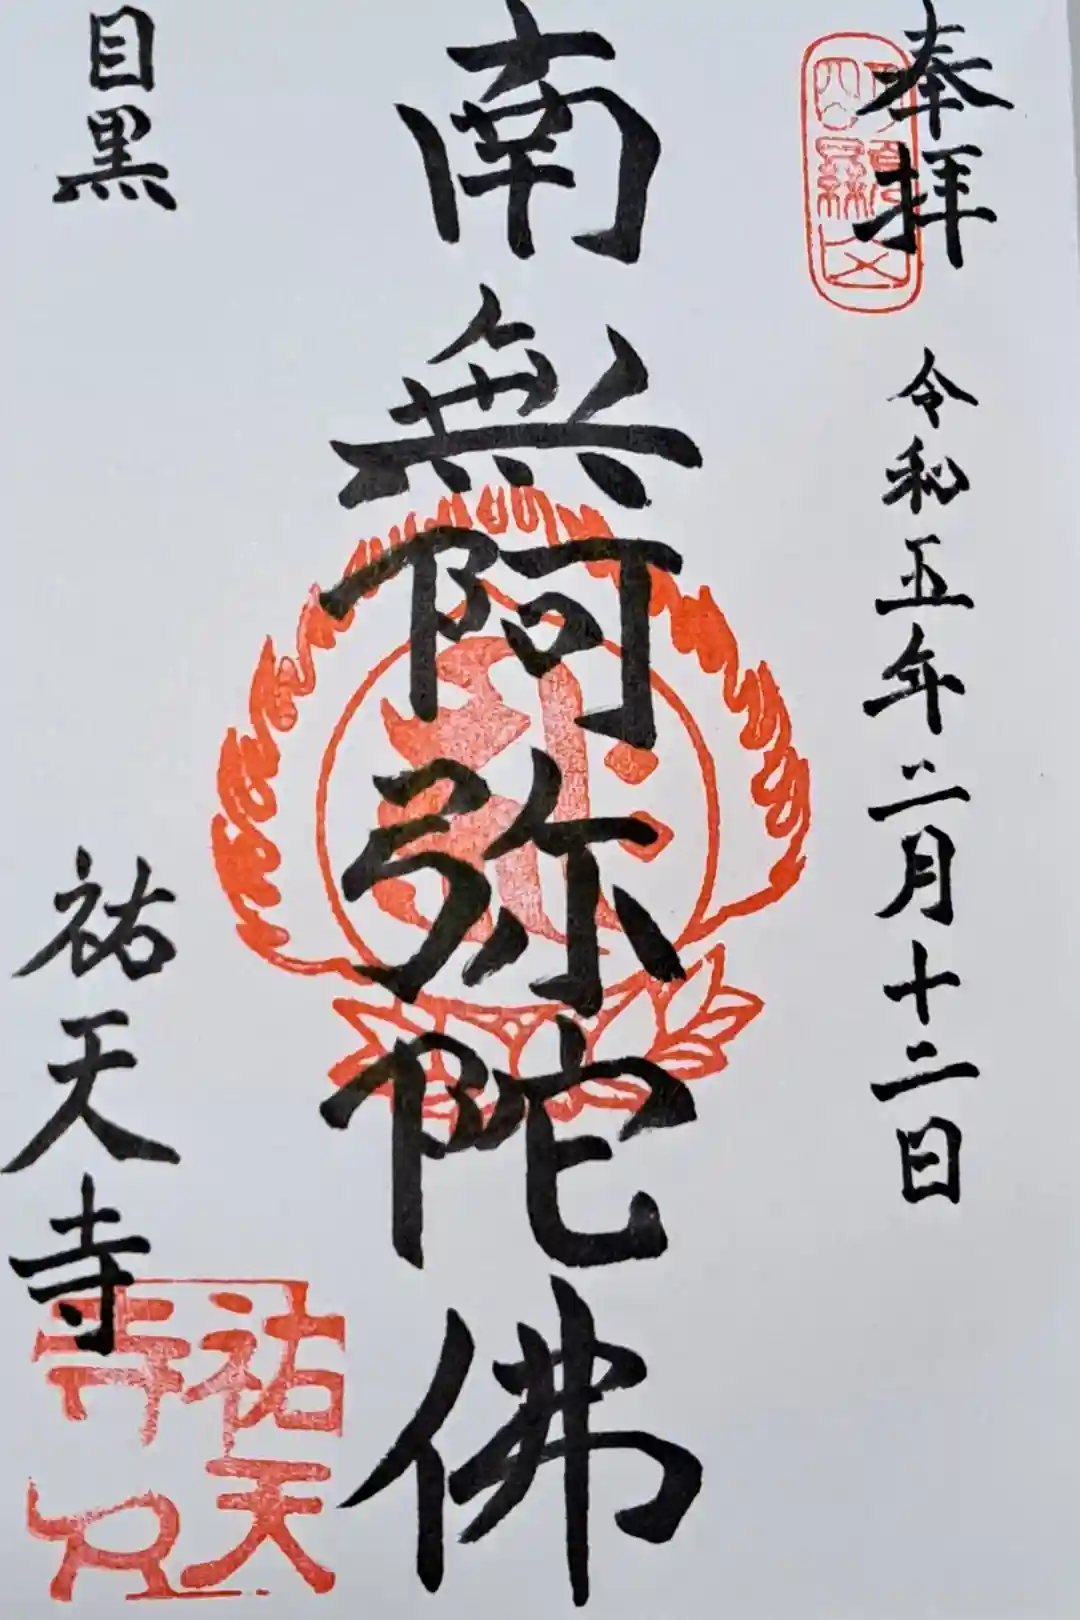 奉拝
令和五年二月十二日
南無阿弥陀佛
目黒
祐天寺
祐天寺